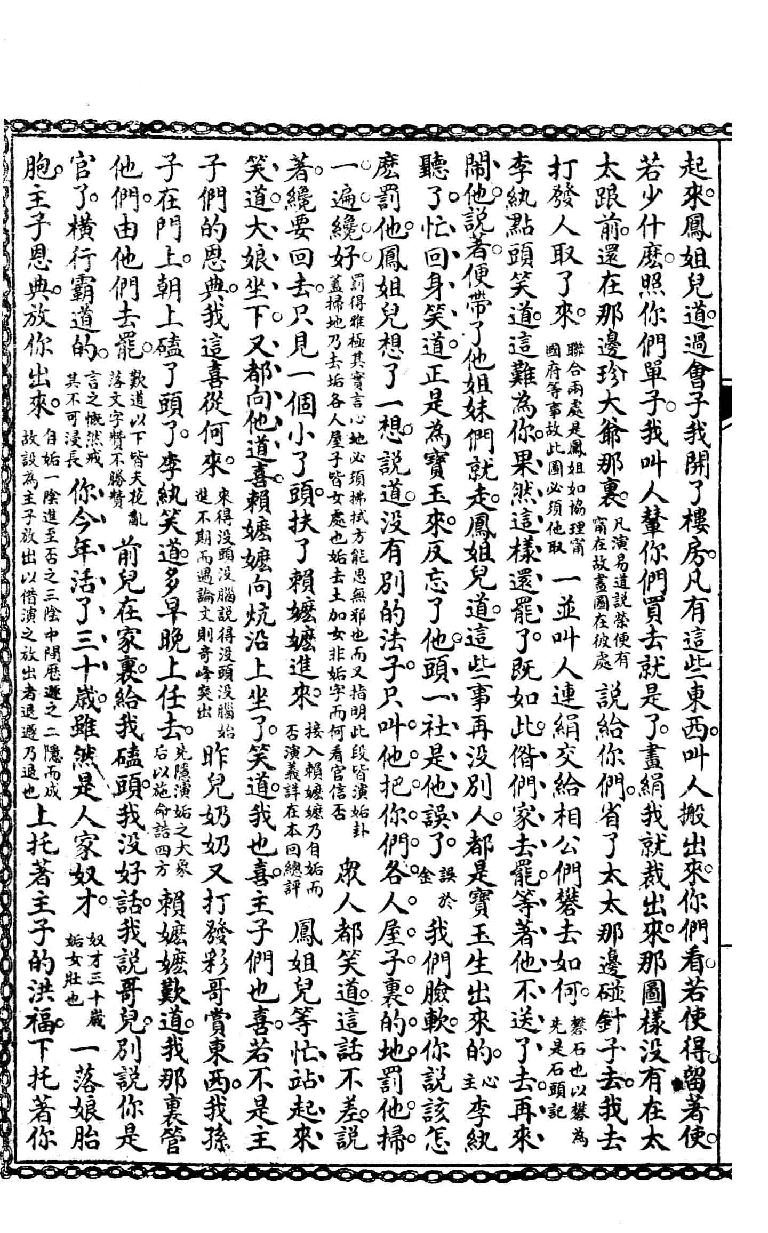 起來鳳姐兒道過會子我開了樓房凡有這些東西叫人搬出來你們看若使得留著使
若少什麽照你們單子我叫人輦你們買去就是了畫絹我就裁出來那圖樣沒有在太
太跟前還在那邊珍大爺那裏凡演易道說榮便有甯在故畫圖在彼處說給你們省了太太那邊碰針子去我去
打發人取了來聯合兩處是鳳姐如協理甯國府等事故此圖必須他取一並叫人連絹交給相公們礬去如何礬石也以礬為先是石頭記
李紈點頭笑道這難為你果然這樣還罷了既如此偺們家去罷等著他不送了去再來
鬧他說著便帶了他姐妹們就走鳳姐兒道這些事再沒別人都是寶玉生出來的主心李紈
聽了忙回身笑道正是為寶玉來反忘了他頭一社是他誤了誤於金我們臉軟你說該怎
麽罰他鳳姐兒想了一想說道沒有別的法子只叫他把你們各人屋子裏的地罰他掃
一遍纔好罰得雅極其實言心地必須拂拭方能思無邪也而又指明此段皆演姤卦蓋掃地乃去垢各人屋子皆女處也垢去土加女非姤字而何看官信否衆人都笑道這話不差說
著纔要回去只見一個小丫頭扶了賴嬤嬤進來接入賴嬤嬤乃自姤而否演義詳在本回總評鳳姐兒等忙站起來
笑道大娘坐下又都向他道喜賴嬤嬤向炕沿上坐了笑道我也喜主子們也喜若不是主
子們的恩典我這喜從何來來得沒頭沒腦說得沒頭沒腦姤進不期而遇論文則奇峰突出昨兒奶奶又打發彩哥賞東西我孫
子在門上朝上磕了頭了李紈笑道多早晚上任去先隱演姤之大象后以施命誥四方賴嬤嬤歎道我那裏管
他們由他們去罷歎道以下皆天挺亂落文字贊不勝贊前兒在家裏給我磕頭我沒好話我說哥兒別說你是
官了橫行霸道的言之慨然戒其不可浸長你今年活了三十歲雖然是人家奴才奴才三十歲姤女壯也一落娘胎
胞主子恩典放你出來自姤一陰進至否之三陰中間歷遯之二隱而成故設為主子放出以借演之放出者退遯乃退也上托著主子的洪福下托著你